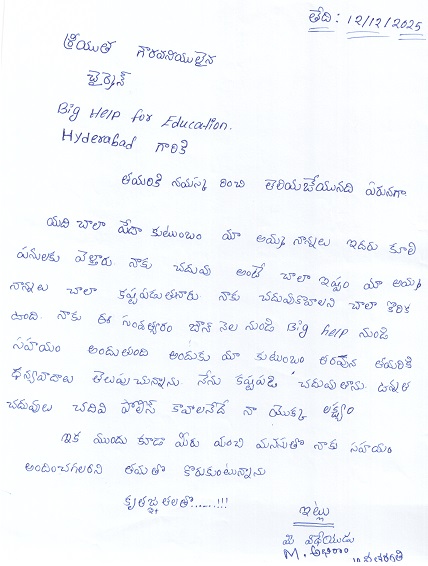 తేది: 12/12/2025
శ్రీయుత గౌరవనీయులైన
చైర్మెన్
Big Help for Education.
Hyderabad గారికి
తమరికి నమస్క రించి తెలియజేయునది ఏమనగా
మాది చాలా పేదా కుటుంబం మా అమ్మ నాన్నలు ఇదరు కూలి
పనులకు వెళ్తారు నాకు చదువు అంటే చాలా ఇష్టం మా అమ్మ
నాన్నలు చాలా కష్టపడుతునారు నాకు చదువుకోవాలని చాలా కోరిక
ఉంది. నాకు ఈ సంవత్సరం జూన్ నెల నుండి Big help నుండి
సహయం అందుతుంది అందుకు మా కుటుంబం తరపున తమరికి
ధన్యవాదాలు తెలుపుచున్నాను నేను కష్టపడి చదువుతాను. ఉన్నత
చదువులు చదివి పోలిస్ కావాలనేదే నా యొక్క లక్ష్యం
ఇక ముందు కూడా మీరు మంచి మనసుతో నాకు సహయం
అందించగలరని తమతో కోరుకుంటున్నాను
కృతజ్ఞతలతో......!!!
ఇట్లు
మీ విధేయుడు
M. అభిరాం
తరగతి